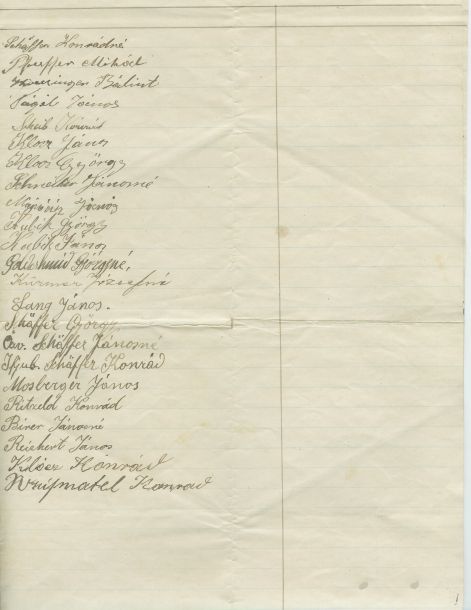 Schäffer Konrádné
Pfeiffer Mihály
Bálint
János
Konrád
Kloor János
Kloos György
Schneiker Jánosné
János
Kubik György
Kubik János
Goldschmid Györgyné,
Kürmer Józsefné
Lang János.
Schäffer György
Özv. Schäffer Jánosné
Ifjub. Schäffer Konrád
Mosberger János
Ritzeld Konrád
Birer Jánosné
Reichert János
Klósz Konrád
Konrad